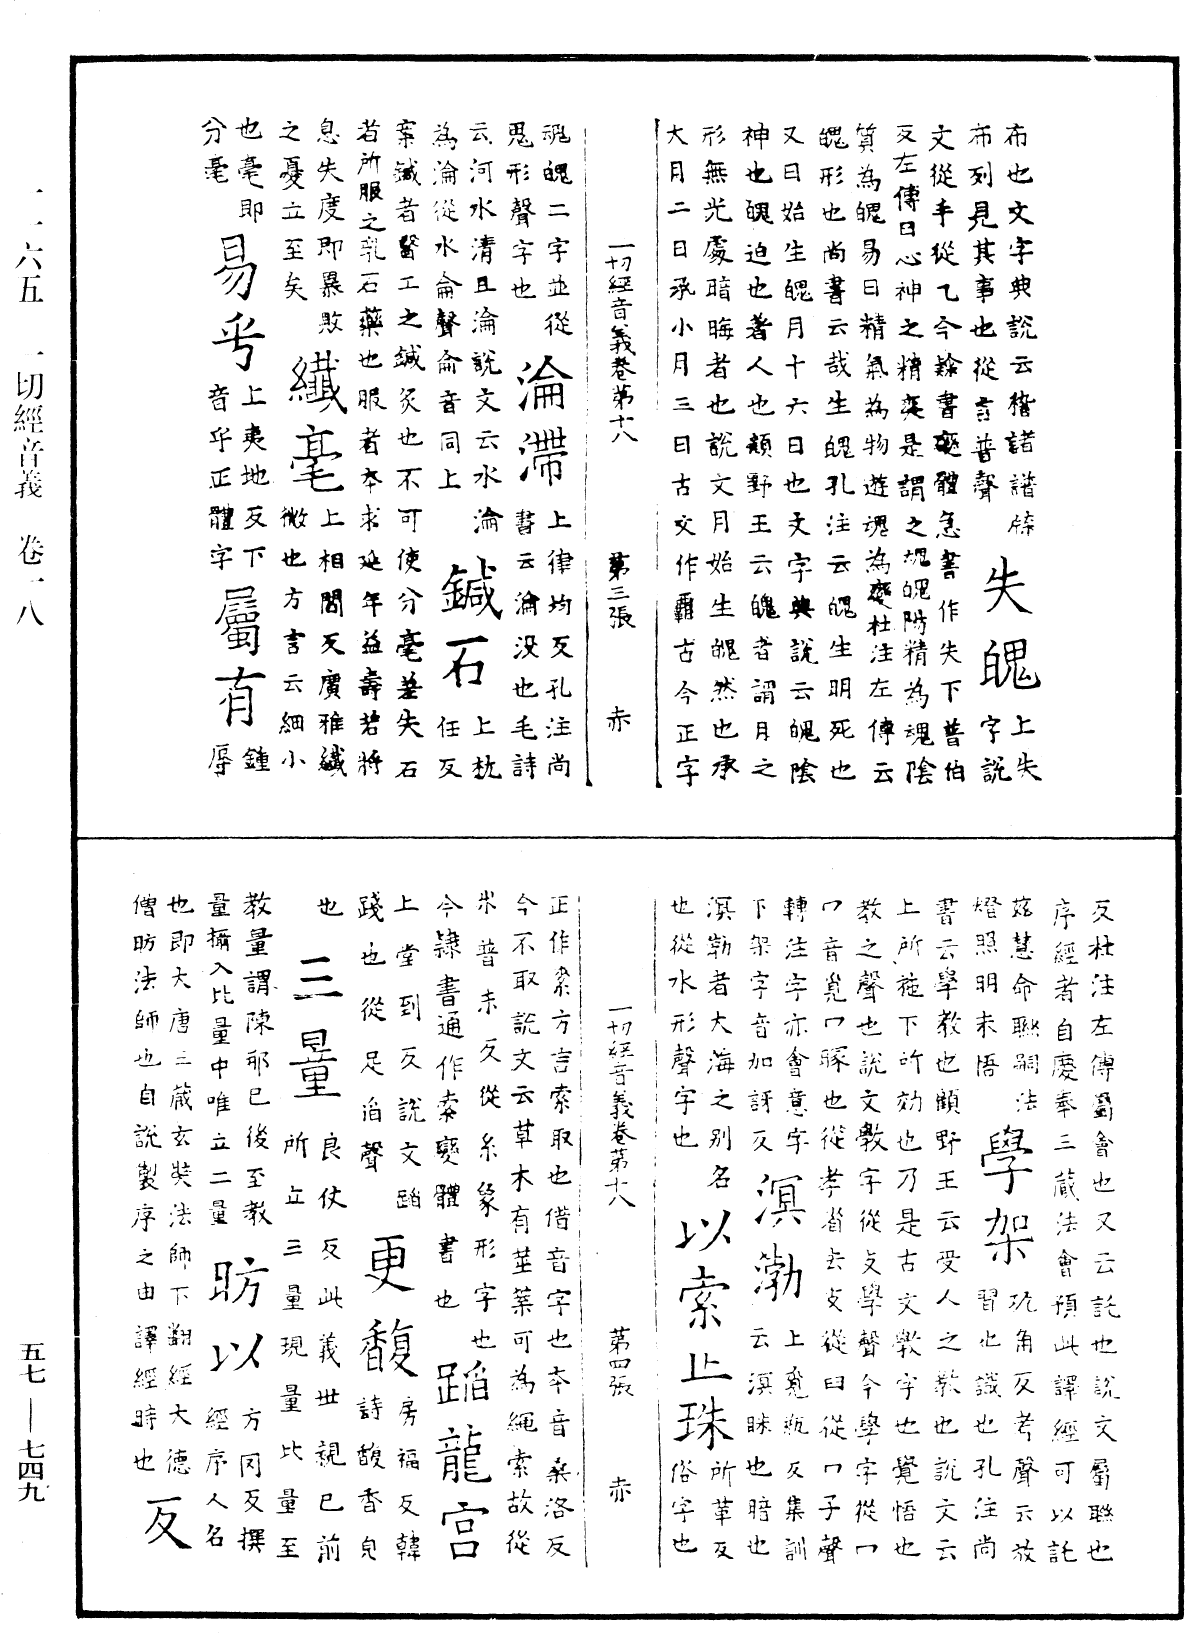 布也文字典說云楷諸譜牒
布列見其事也從言普聲
失魄
上失
字說
文從手從乀今隸書變體急書作失下普伯
反左傳曰心神之精爽是謂之魂魄陽精為魂陰
質為魄易曰精氣為物遊魂為變杜注左傳云
魄形也尚書云哉生魄孔注云魄生明死也
又曰始生魄月十六日也文字典說云魄陰
神也魄迫也著人也顧野王云魄者謂月之
形無光處暗晦者也說文月始生魄然也承
大月二日承小月三日古文作霸古今正字
一切經音義卷第十八 第三張 赤
魂魄二字並從
鬼形聲字也
淪滯
上律均反孔注尚
書云淪没也毛詩
云河水清且淪說文云水淪
為淪從水侖聲侖音同上
鍼石
上枕
任反
案鍼者醫工之鍼灸也不可使分毫差失石
者所服之乳石藥也服者本求延年益壽若將
息失度即暴敗
之憂立至矣
纖毫
上相閻反廣雅纖
微也方言云細小
也毫即
分毫
易乎
上夷地反下
音乎正體字
屬有
鍾
辱
反杜注左傳屬會也又云託也說文屬聯也
序經者自慶奉三藏法會預此譯經可以託
茲慧命聯嗣法
燈照明未悟
學架
巩角反考聲云放
習也識也孔注尚
書云學教也顧野王云受人之教也說文云
上所施下所効也乃是古文斆字也覺悟也
教之聲也說文斆字從攴學聲今學字從冖
冖音覓冖朦也從孝省去攴從臼從冖子聲
轉注字亦會意字
下架字音加訝反
溟渤
上覓瓶反集訓
云溟昧也暗也
溟渤者大海之别名
也從水形聲字也
以索止珠
所革反
俗字也
正作𡩡方言索取也借音字也本音桑洛反
今不取說文云草木有莖葉可為繩索故從
米普末反從糸象形字也
今隸書通作索變體書也
蹈龍宮
上堂到反說文蹈
踐也從足舀聲
更馥
房福反韓
詩馥香皃
也
三量
良仗反此義世親已前
所立三量現量比量至
教量謂陳那已後至教
量攝入比量中唯立二量
昉以
方罔反撰
經序人名
也即大唐三藏玄奘法師下翻經大德
僧昉法師也自說製序之由譯經時也
反
一切經音義卷第十八 第四張 赤
一一六五 一切經音義 卷一八
五七——七四九